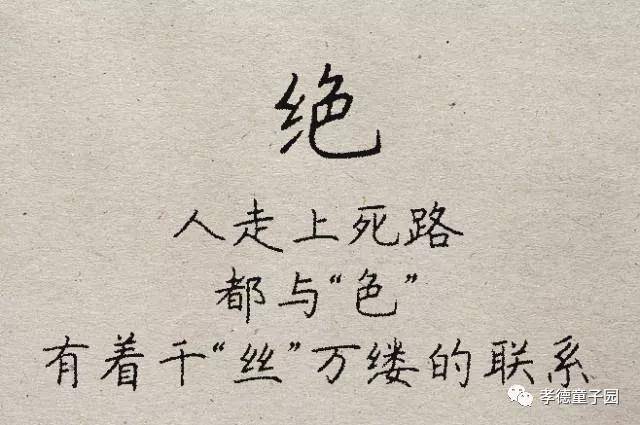 绝
人走上死路
都与“色”
有着千“丝”万缕的联系
孝德童子园